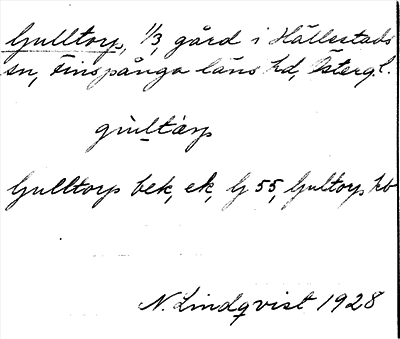 Gulltorp, 1/3, gård i Hällestads
sn, Finspånga läns hd, Östergl.
gùltárp
Gulltorp bek, ek, G 55, Gultorp hb
N. Lindqvist 1928